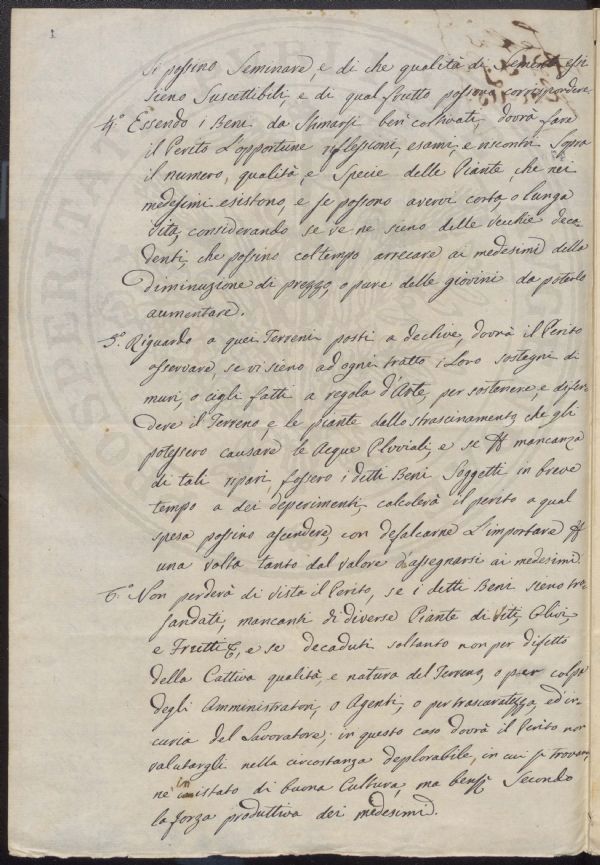 1
si possino Seminare, e di che qualità di Sementa essi
sieno Suscettibili, e di qual frutto possono corrispondere.
4.° Essendo i Beni da Stimarsi ben coltivati, dovrà fare
il Perito l'opportune riflessioni, esami, e riscontri Sopra
il numero, qualità, e Specie delle Piante, che nei
medesimi esistono, e se possono avervi corta, o lunga
vita, considerando se ve ne sieno delle vecchie deca-
denti, che possino col tempo arrecare ai medesimi della
diminuzione di prezzo, o pure delle giovini da poterlo
aumentare.
5.° Riguardo a quei Terreni posti a declive, dovrà il Perito
osservare, se vi sieno ad ogni tratto i Loro sostegni di
muri, o cigli fatti a regola d'Arte, per sostenere, e difen-
dere il Terreno, e le piante dallo strascinamento, che gli
potessero causare le Acque Pluviali, e se p mancanza
di tali ripari, fossero i detti Beni Soggetti in breve
tempo a dei deperimenti, calcolerà il perito a qual
spesa possino ascendere, con defalcarne L'importare p
una volta tanto dal valore d'assegnarsi ai medesimi.
6.° Non perderà di vista il Perito, se i detti Beni sieno tra-
sandati, mancanti di diverse Piante di Viti, Olivi,
e Frutti &, e se decaduti soltanto non per difetto
della Cattiva qualità, e natura del Terreno, o per colpa
degli Amministratori, o Agenti, o per trascuratezza, ed in-
curia del Lavoratore; in questo caso dovrà il Perito non
valutargli nella circostanza deplorabile, in cui si trovano,
nè in istato di buona Cultura, ma bensì Secondo
la forza produttiva dei medesimi.